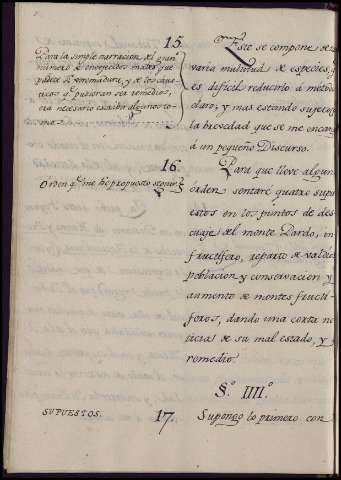 15.
Para la simple narracion del gran
numero de enemigos males que
padece Extremadura, y de los
que pudieran ser remedios,
era necesario escribir algunos to-
mos.
Este se compone de
varia multitud de especies, y
es dificil reducirlo á metodo
claro; y mas estando sujeto
la brevedad que se me encarga
á un pequeño Discurso.
16.
Orden q.e me hé propuesto seguir.
Para que lleve algun
orden sentare quatro supu
estos en los puntos de des
cuaje del monte Pardo, in
fructifero, reparto de valdios
poblacion y conservacion y
aumento de montes fructi
feros, dando una corta no
ticia de su mal estado, y
remedio.
§.º IIII.º
SUPUESTOS.
17.
Supongo lo primero con